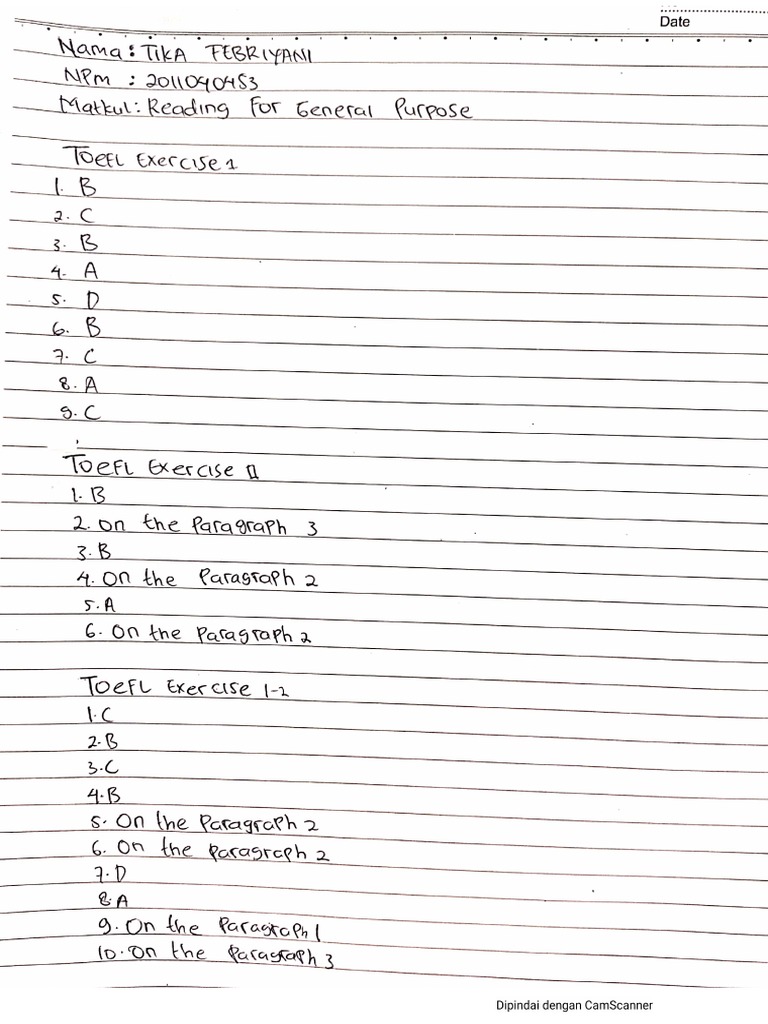 Date
Nama : TIKA FEBRIYANI
NPM : 2011040453
Matkul : Reading For General Purpose
TOEFL Exercise 1
1. B
2. C
3. B
4. A
5. D
6. B
7. C
8. A
9. C
TOEFL Exercise II
1. B
2. on the Paragraph 3
3. B
4. On the Paragraph 2
5. A
6. On the Paragraph 2
TOEFL Exercise 1-2
1. C
2. B
3. C
4. B
5. On the Paragraph 2
6. On the Paragraph 2
7. D
8. A
9. On the Paragraph 1
10. On the Paragraph 3
Dipindai dengan CamScanner